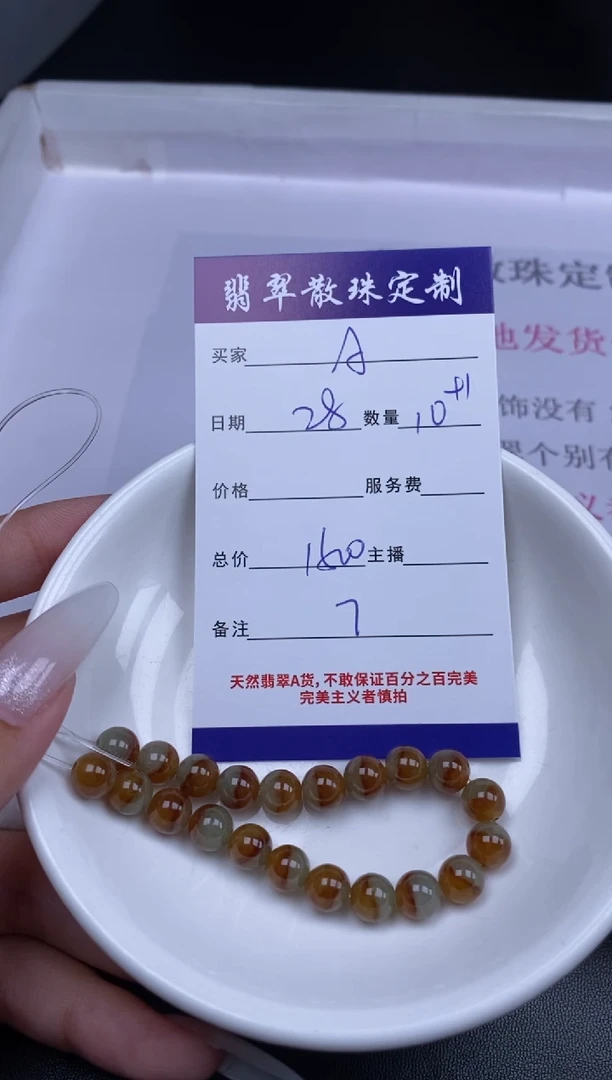 翡翠散珠定制
买家 A
日期 28 数量 10+1
价格 服务费
总价 1600 主播
备注 7
天然翡翠A货,不敢保证百分之百完美
完美主义者慎拍
珠定
地发货
饰没有
个别